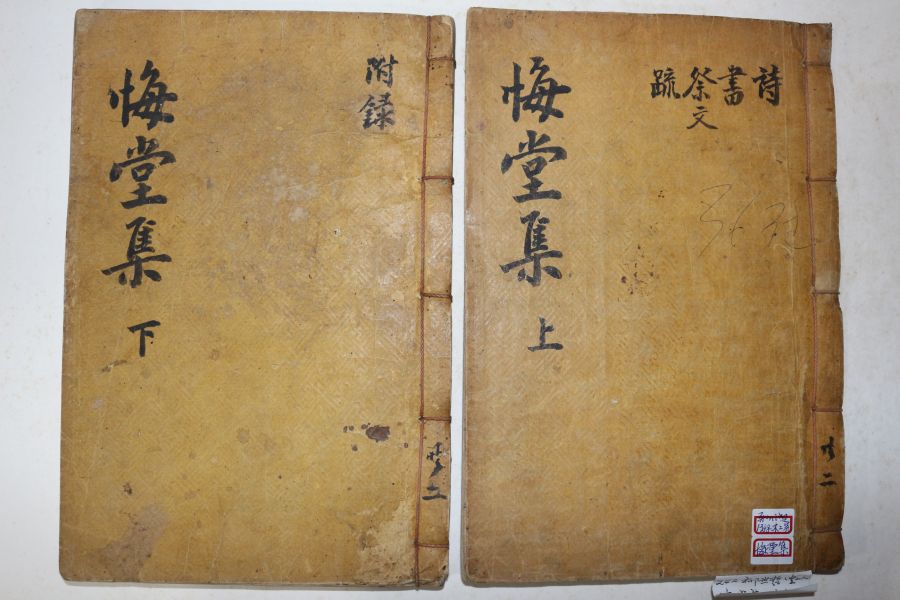 悔堂集
上
詩
書
祭文
疏
共二
悔堂集
悔堂集
下
附録
共二